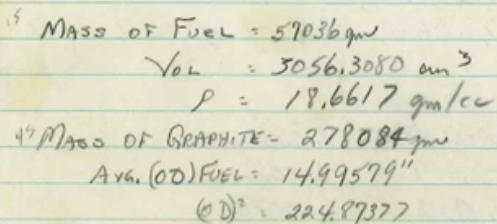 MASS OF FUEL = 57036 gm
VOL = 3056.3080 cm³
ρ = 18.6617 gm/cc
MASS OF GRAPHITE = 278084 gm
AVG. (OD) FUEL = 14.99579"
(OD)² = 224.87377